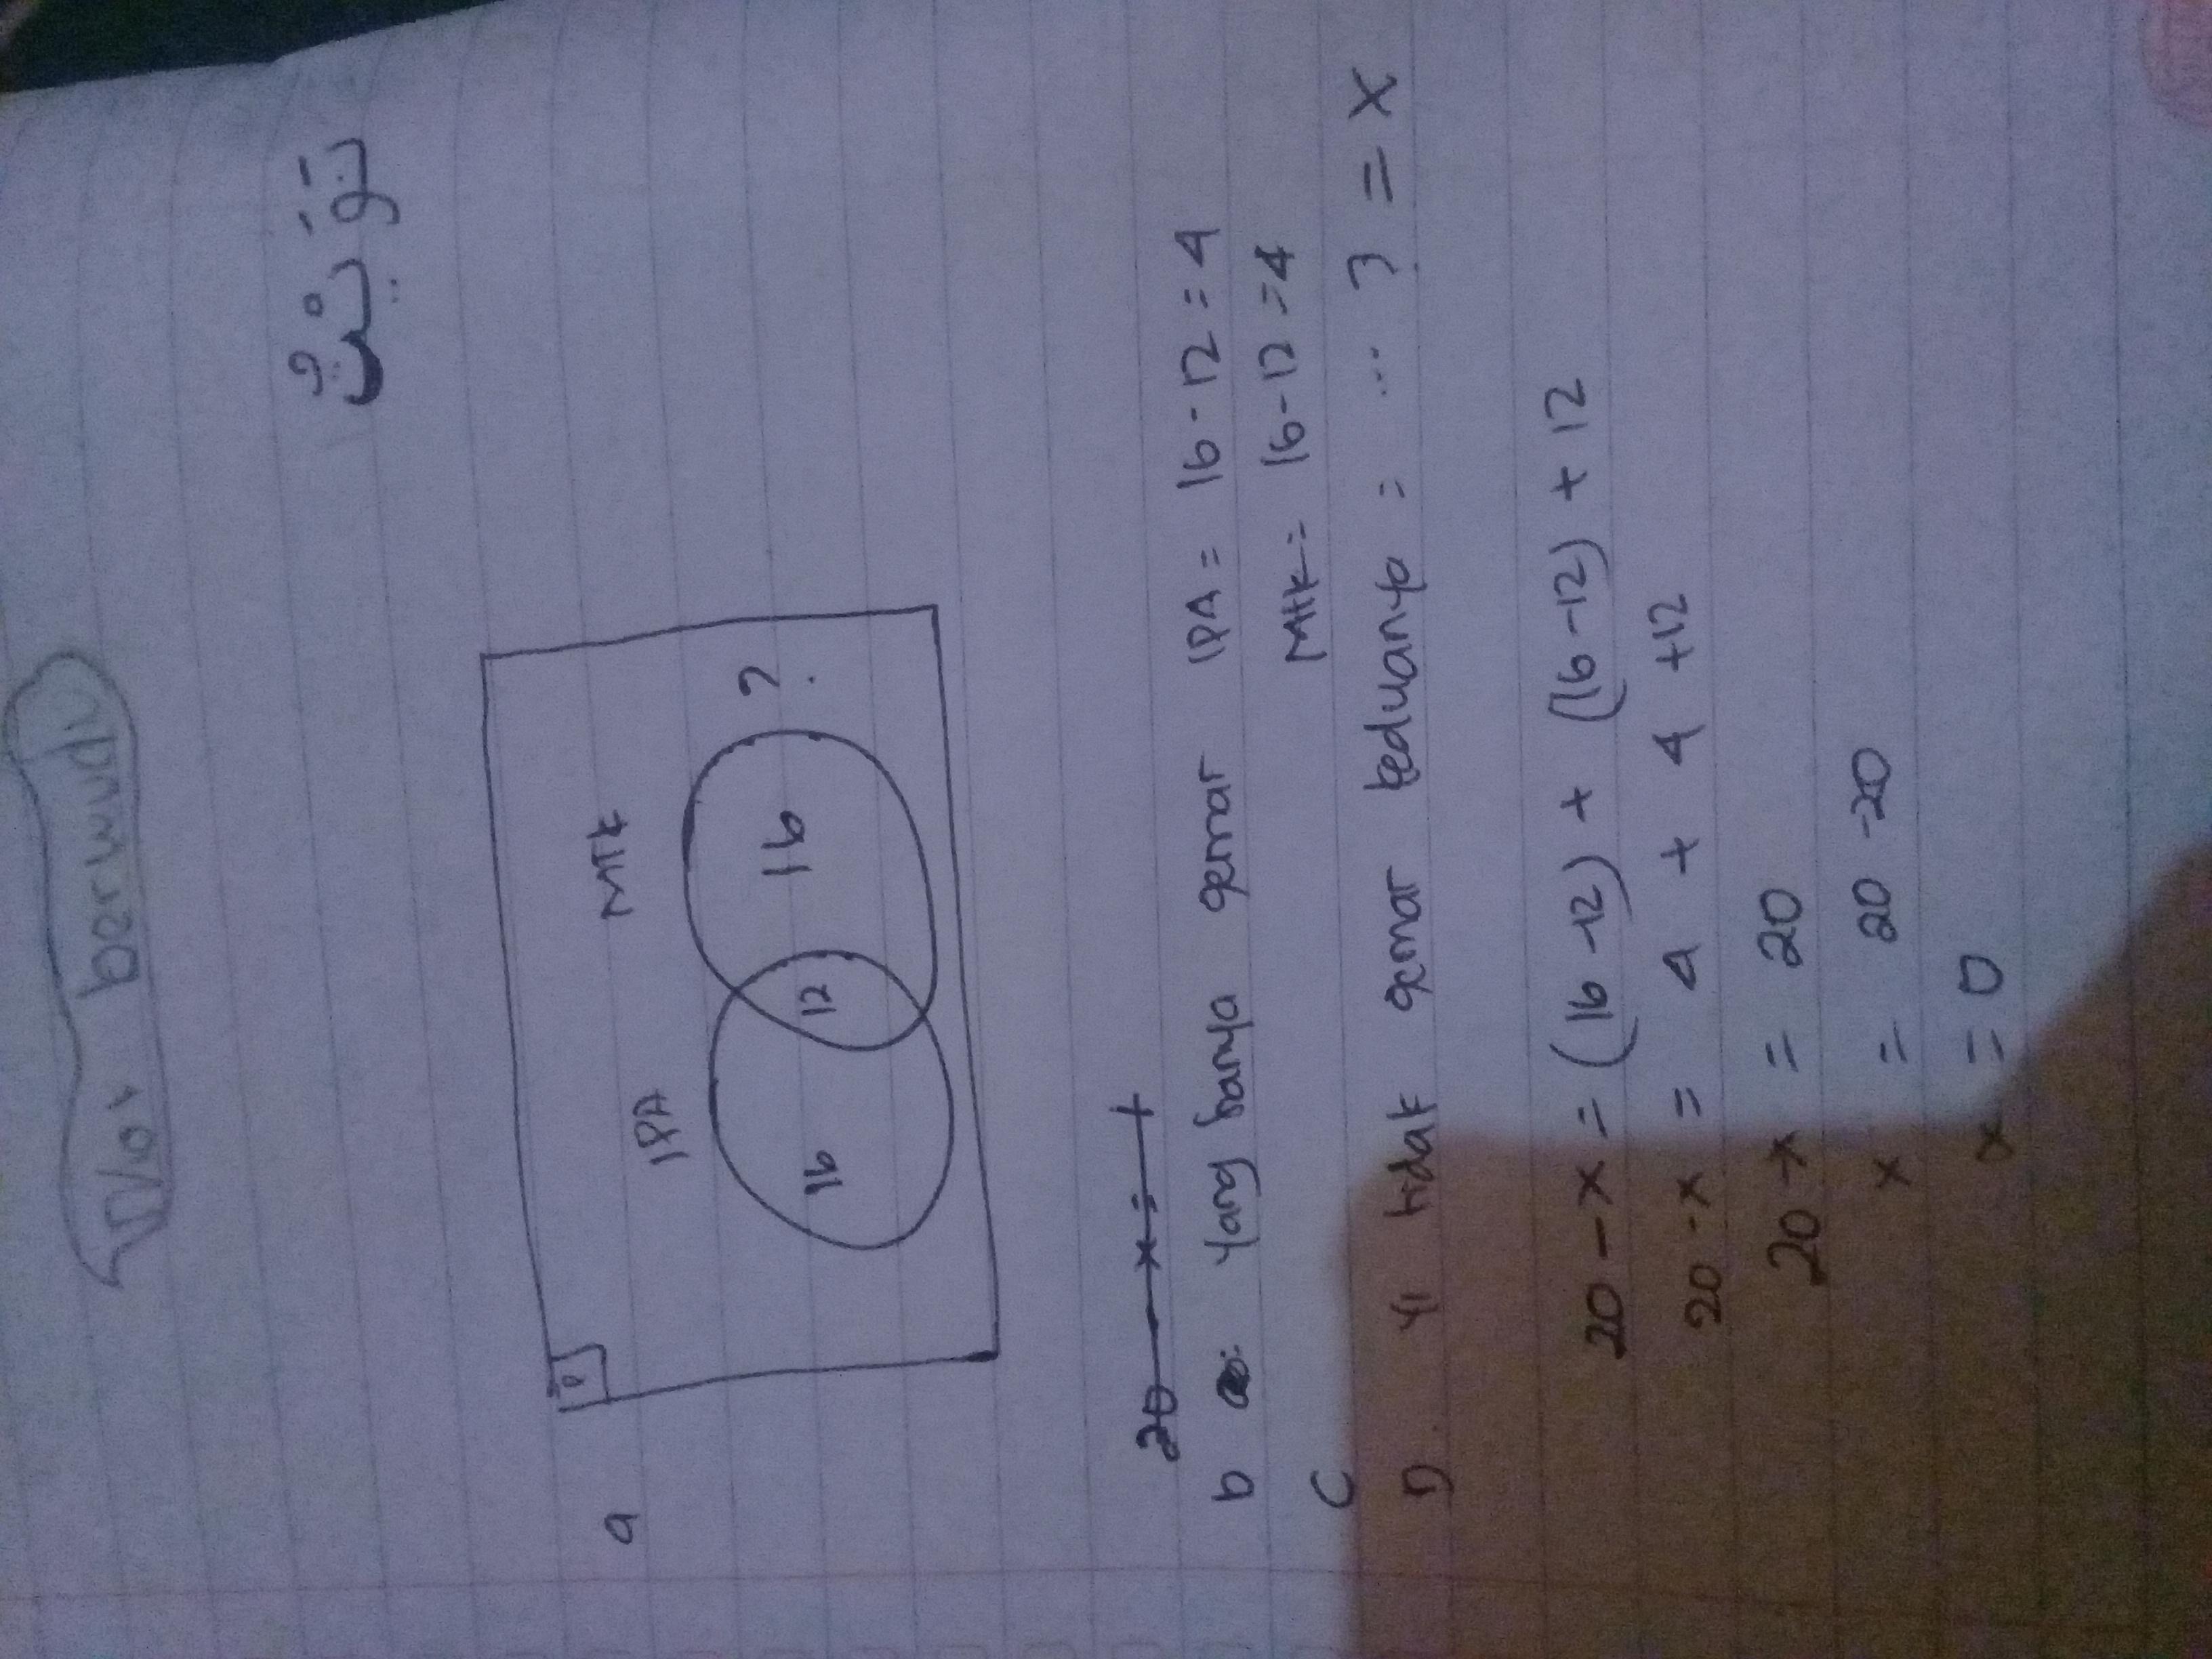 تَوْبِيْتُ
a
IPA
MTK
16
12
16
?
20 - x = +
b Yang hanya gemar IPA = 16 - 12 = 4
C MTK = 16 - 12 = 4
D. yg tidak gemar keduanya = ... ? = x
20 - x = (16 - 12) + (16 - 12) + 12
20 - x = 4 + 4 + 12
20 - x = 20
x = 20 - 20
x = 0